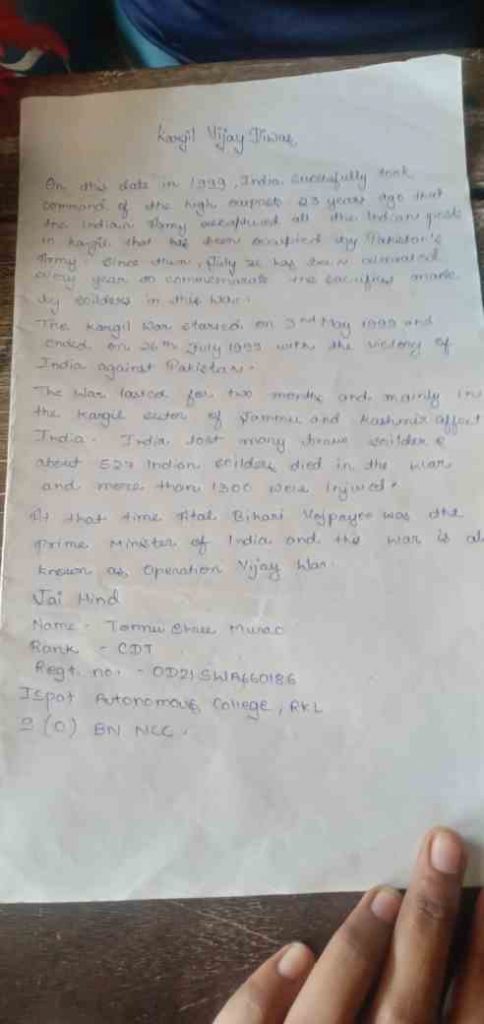 Kargil Vijay Diwas
On this date in 1999, India successfully took
command of the high outposts 23 years ago that
the Indian Army recaptured all the Indian posts
in Kargil that has been occupied by Pakistan's
Army. Since then, July 26 has been
every year to commemorate the sacrifices made
by soilders in this War.
The Kargil War started on 3rd May 1999 and
ended on 26th July 1999 with the victory of
India against Pakistan.
The War lasted for two months and mainly in
the Kargil sector of Jammu and Kashmir
India. India lost many brave soilders
about 527 Indian soilders died in the war
and more than 1300 were injured.
At that time Atal Bihari Vajpayee was the
Prime Minister of India and the war is al
known as Operation Vijay War.
Jai Hind
Name - Shree
Rank - CDT
Regt. no. - OD21SWA660186
Ispat Autonomous College, RKL
(O) BN NCC.